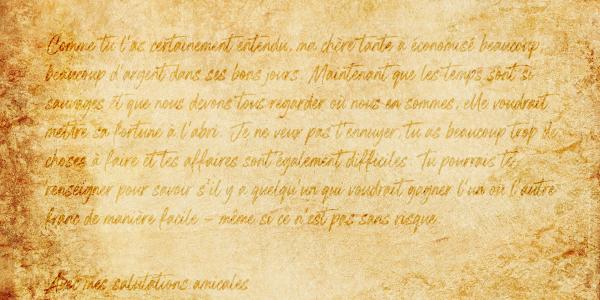 Comme tu l'as certainement entendu, ma chère tante a économisé beaucoup,
beaucoup d'argent dans ses bons jours. Maintenant que les temps sont si
sauvages et que nous devons tous regarder où nous en sommes, elle voudrait
mettre sa fortune à l'abri. Je ne veux pas t'ennuyer, tu as beaucoup trop de
choses à faire et tes affaires sont également difficiles. Tu pourrais te
renseigner pour savoir s'il y a quelqu'un qui voudrait gagner l'un ou l'autre
franc de manière facile – même si ce n'est pas sans risque.
Avec mes salutations amicales